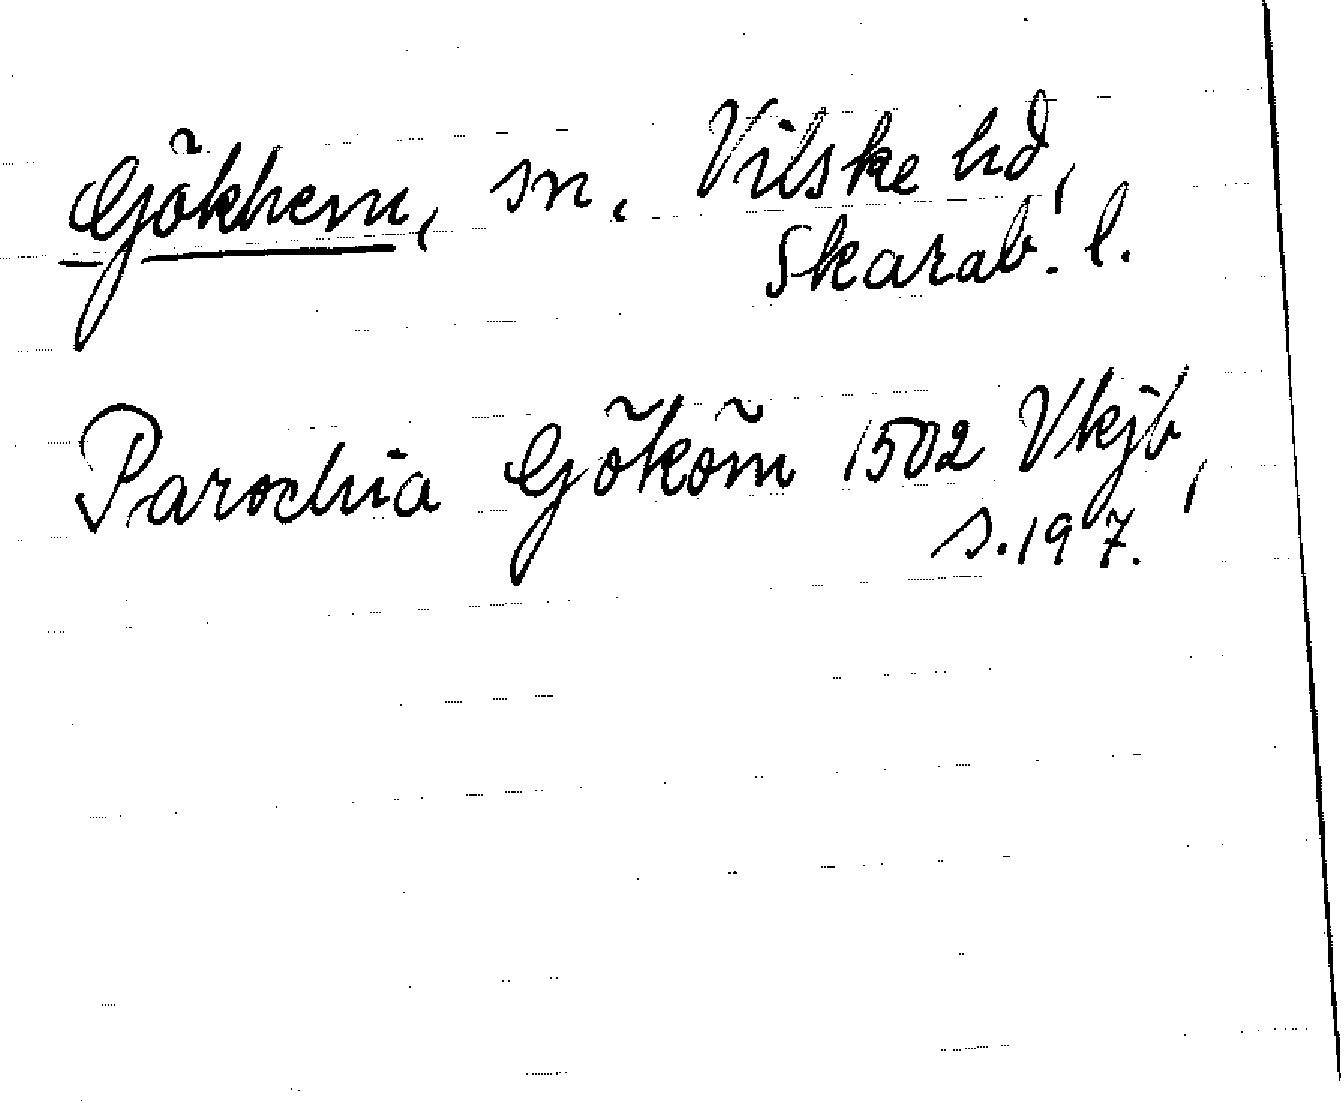 Gökhem, sn, Vilske hd,
Skarab. l.
Parochia Gököm 1502 Vkjb,
s. 197.